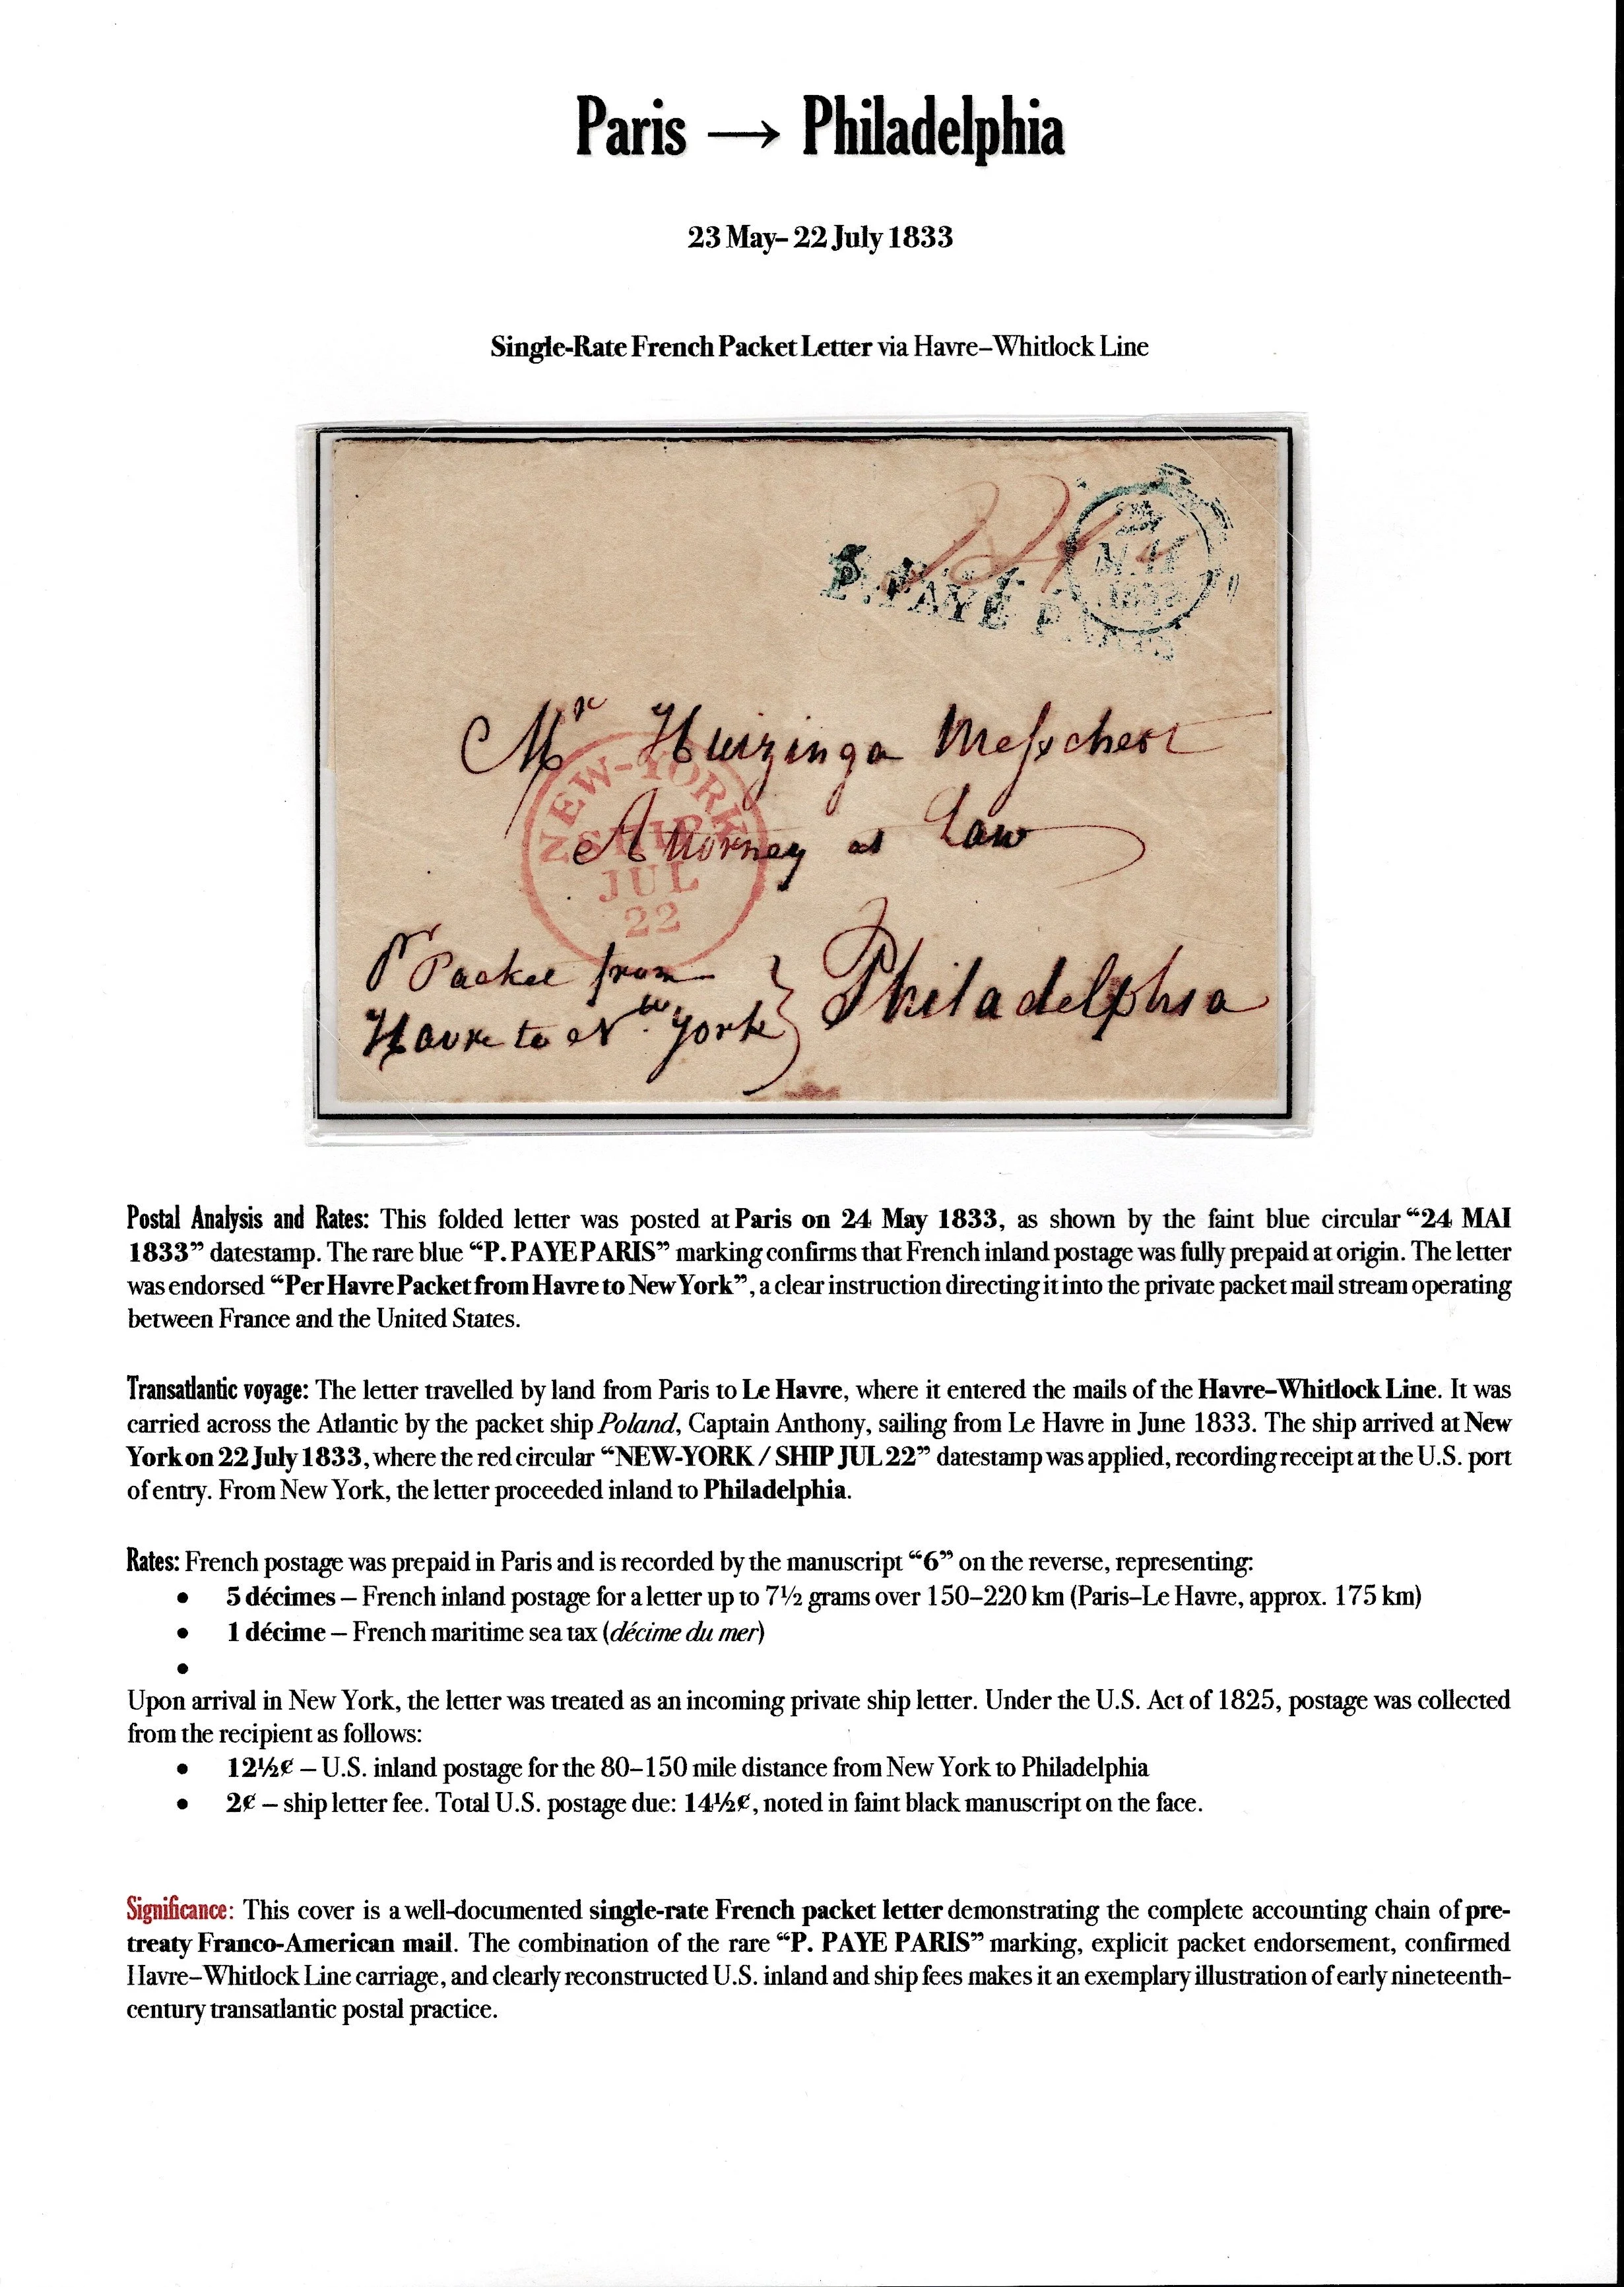 Paris → Philadelphia
23 May– 22 July 1833
Single-Rate French Packet Letter via Havre–Whitlock Line
P. PAYÉ PARIS
MAI
1833
Mr Huizinga Messchert
NEW-YORK
SHIP
JUL
22
Attorney at Law
Pr Packet from
Havre to New York
Philadelphia
Postal Analysis and Rates: This folded letter was posted at Paris on 24 May 1833, as shown by the faint blue circular “24 MAI
1833” datestamp. The rare blue “P. PAYE PARIS” marking confirms that French inland postage was fully prepaid at origin. The letter
was endorsed “Per Havre Packet from Havre to New York”, a clear instruction directing it into the private packet mail stream operating
between France and the United States.
Transatlantic voyage: The letter travelled by land from Paris to Le Havre, where it entered the mails of the Havre–Whitlock Line. It was
carried across the Atlantic by the packet ship Poland, Captain Anthony, sailing from Le Havre in June 1833. The ship arrived at New
York on 22 July 1833, where the red circular “NEW-YORK / SHIP JUL 22” datestamp was applied, recording receipt at the U.S. port
of entry. From New York, the letter proceeded inland to Philadelphia.
Rates: French postage was prepaid in Paris and is recorded by the manuscript “6” on the reverse, representing:
• 5 décimes – French inland postage for a letter up to 7½ grams over 150–220 km (Paris–Le Havre, approx. 175 km)
• 1 décime – French maritime sea tax (décime du mer)
•
Upon arrival in New York, the letter was treated as an incoming private ship letter. Under the U.S. Act of 1825, postage was collected
from the recipient as follows:
• 12½¢ – U.S. inland postage for the 80–150 mile distance from New York to Philadelphia
• 2¢ – ship letter fee. Total U.S. postage due: 14½¢, noted in faint black manuscript on the face.
Significance: This cover is a well-documented single-rate French packet letter demonstrating the complete accounting chain of pre-
treaty Franco-American mail. The combination of the rare “P. PAYE PARIS” marking, explicit packet endorsement, confirmed
Havre–Whitlock Line carriage, and clearly reconstructed U.S. inland and ship fees makes it an exemplary illustration of early nineteenth-
century transatlantic postal practice.